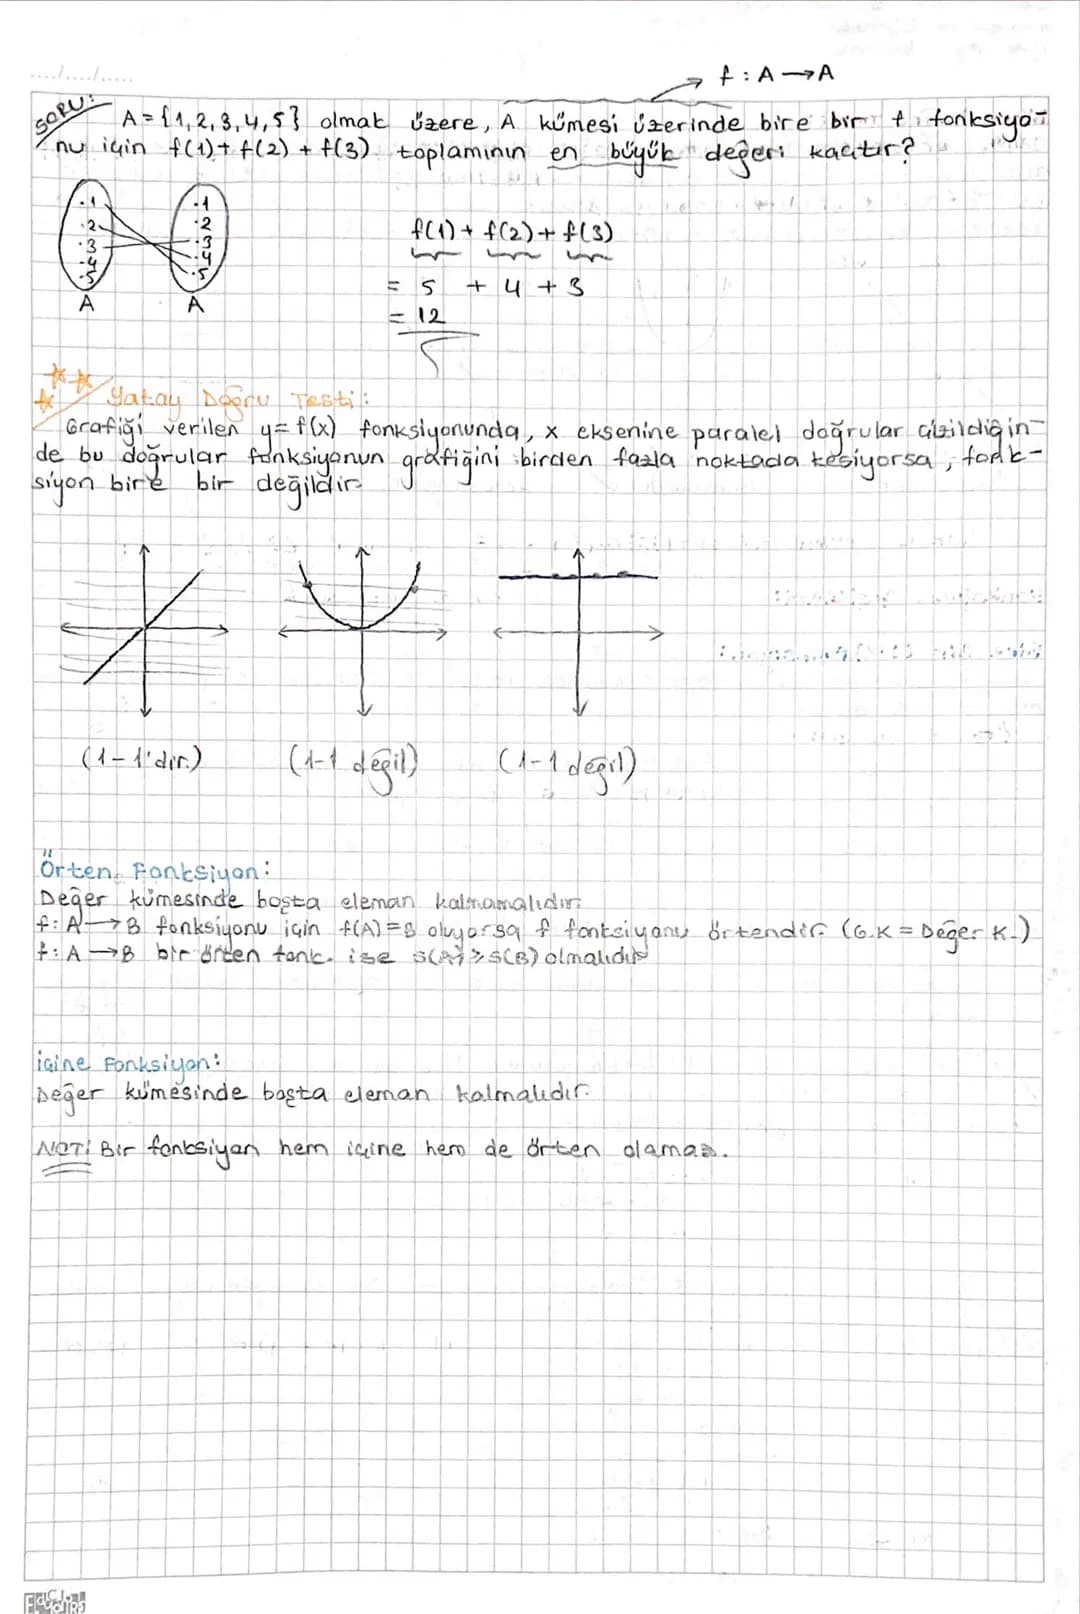 f : A → A
SORU: A = {1,2,3,4,5} olmak üzere, A kümesi üzerinde bire bir f fonksiyo-
nu için f(1) + f(2) + f(3) toplamının en büyük değeri kaçtır?
.1 .1
.2 .2
.3 .3
.4 .4
.5 .5
A A
f(1) + f(2) + f(3)
= 5 + 4 + 3
= 12
Yatay Doğru Testi:
Grafiği verilen y = f(x) fonksiyonunda, x eksenine paralel doğrular çizildiğin-
de bu doğrular fonksiyonun grafiğini birden fazla noktada kesiyorsa, fonk-
siyon bire bir değildir
(1-1'dir.) (1-1 değil) (1-1 değil)
Örten Fonksiyon:
Değer kümesinde boşta eleman kalmamalıdır.
f: A → B fonksiyonu için f(A) = B oluyorsa f fonksiyonu örtendir (G.K = Değer K.)
f: A → B bir örten fonk. ise s(A) ≥ s(B) olmalıdır
İçine Fonksiyon:
Değer kümesinde boşta eleman kalmalıdır.
NOT! Bir fonksiyon hem içine hem de örten olamaz.